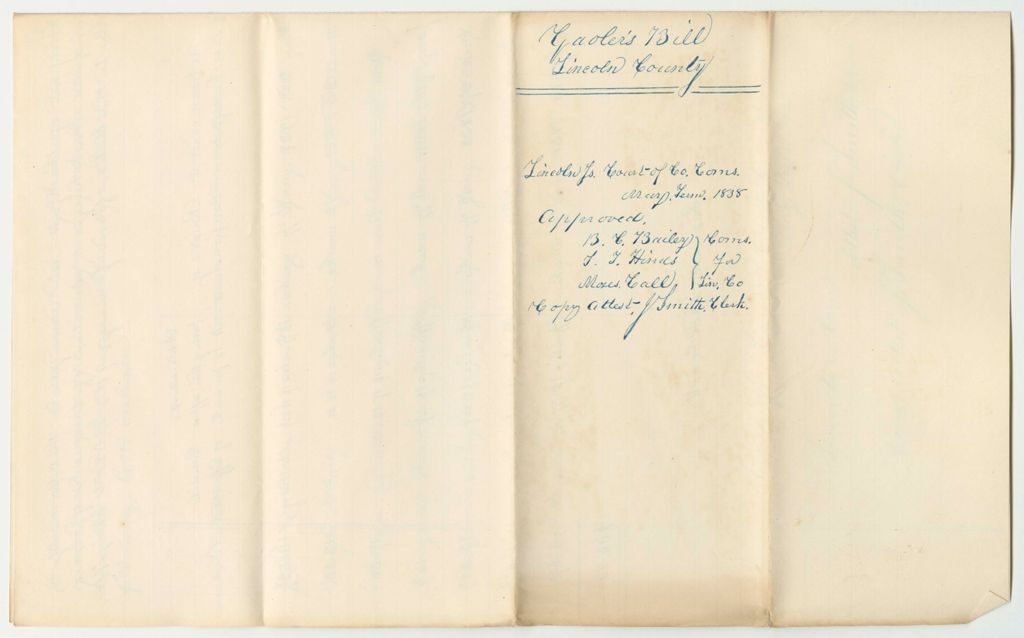 Gaoler's Bill
Lincoln County
Lincoln Js. Court of Co. Coms.
May, Term, 1838
Approved,
B. C. Bailey } Coms.
T. T. Hinds } for
Moses Call, } Lin, Co
Copy Attest, J Smith, Clerk.